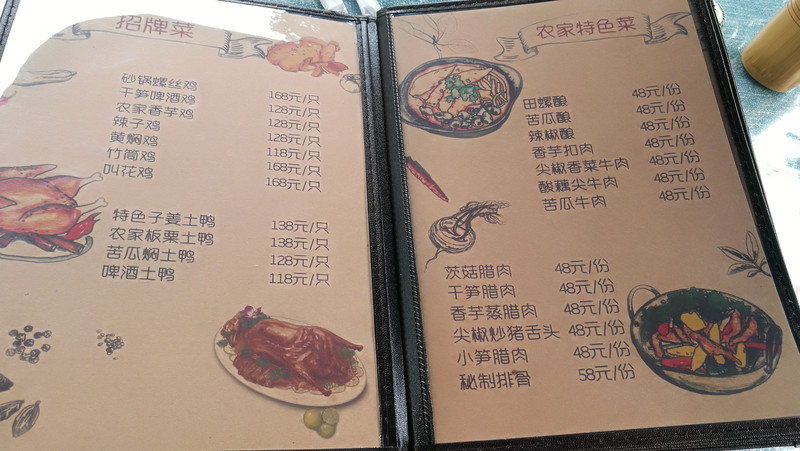 招牌菜
砂锅螺丝鸡 168元/只
干笋啤酒鸡 128元/只
农家香芋鸡 128元/只
辣子鸡 128元/只
黄焖鸡 118元/只
竹筒鸡 168元/只
叫花鸡 168元/只
特色子姜土鸭 138元/只
农家板栗土鸭 138元/只
苦瓜焖土鸭 128元/只
啤酒土鸭 118元/只
农家特色菜
田螺酿 48元/份
苦瓜酿 48元/份
辣椒酿 48元/份
香芋扣肉 48元/份
尖椒香菜牛肉 48元/份
酸藕尖牛肉 48元/份
苦瓜牛肉 48元/份
茨菇腊肉 48元/份
干笋腊肉 48元/份
香芋蒸腊肉 48元/份
尖椒炒猪舌头 48元/份
小笋腊肉 48元/份
秘制排骨 58元/份